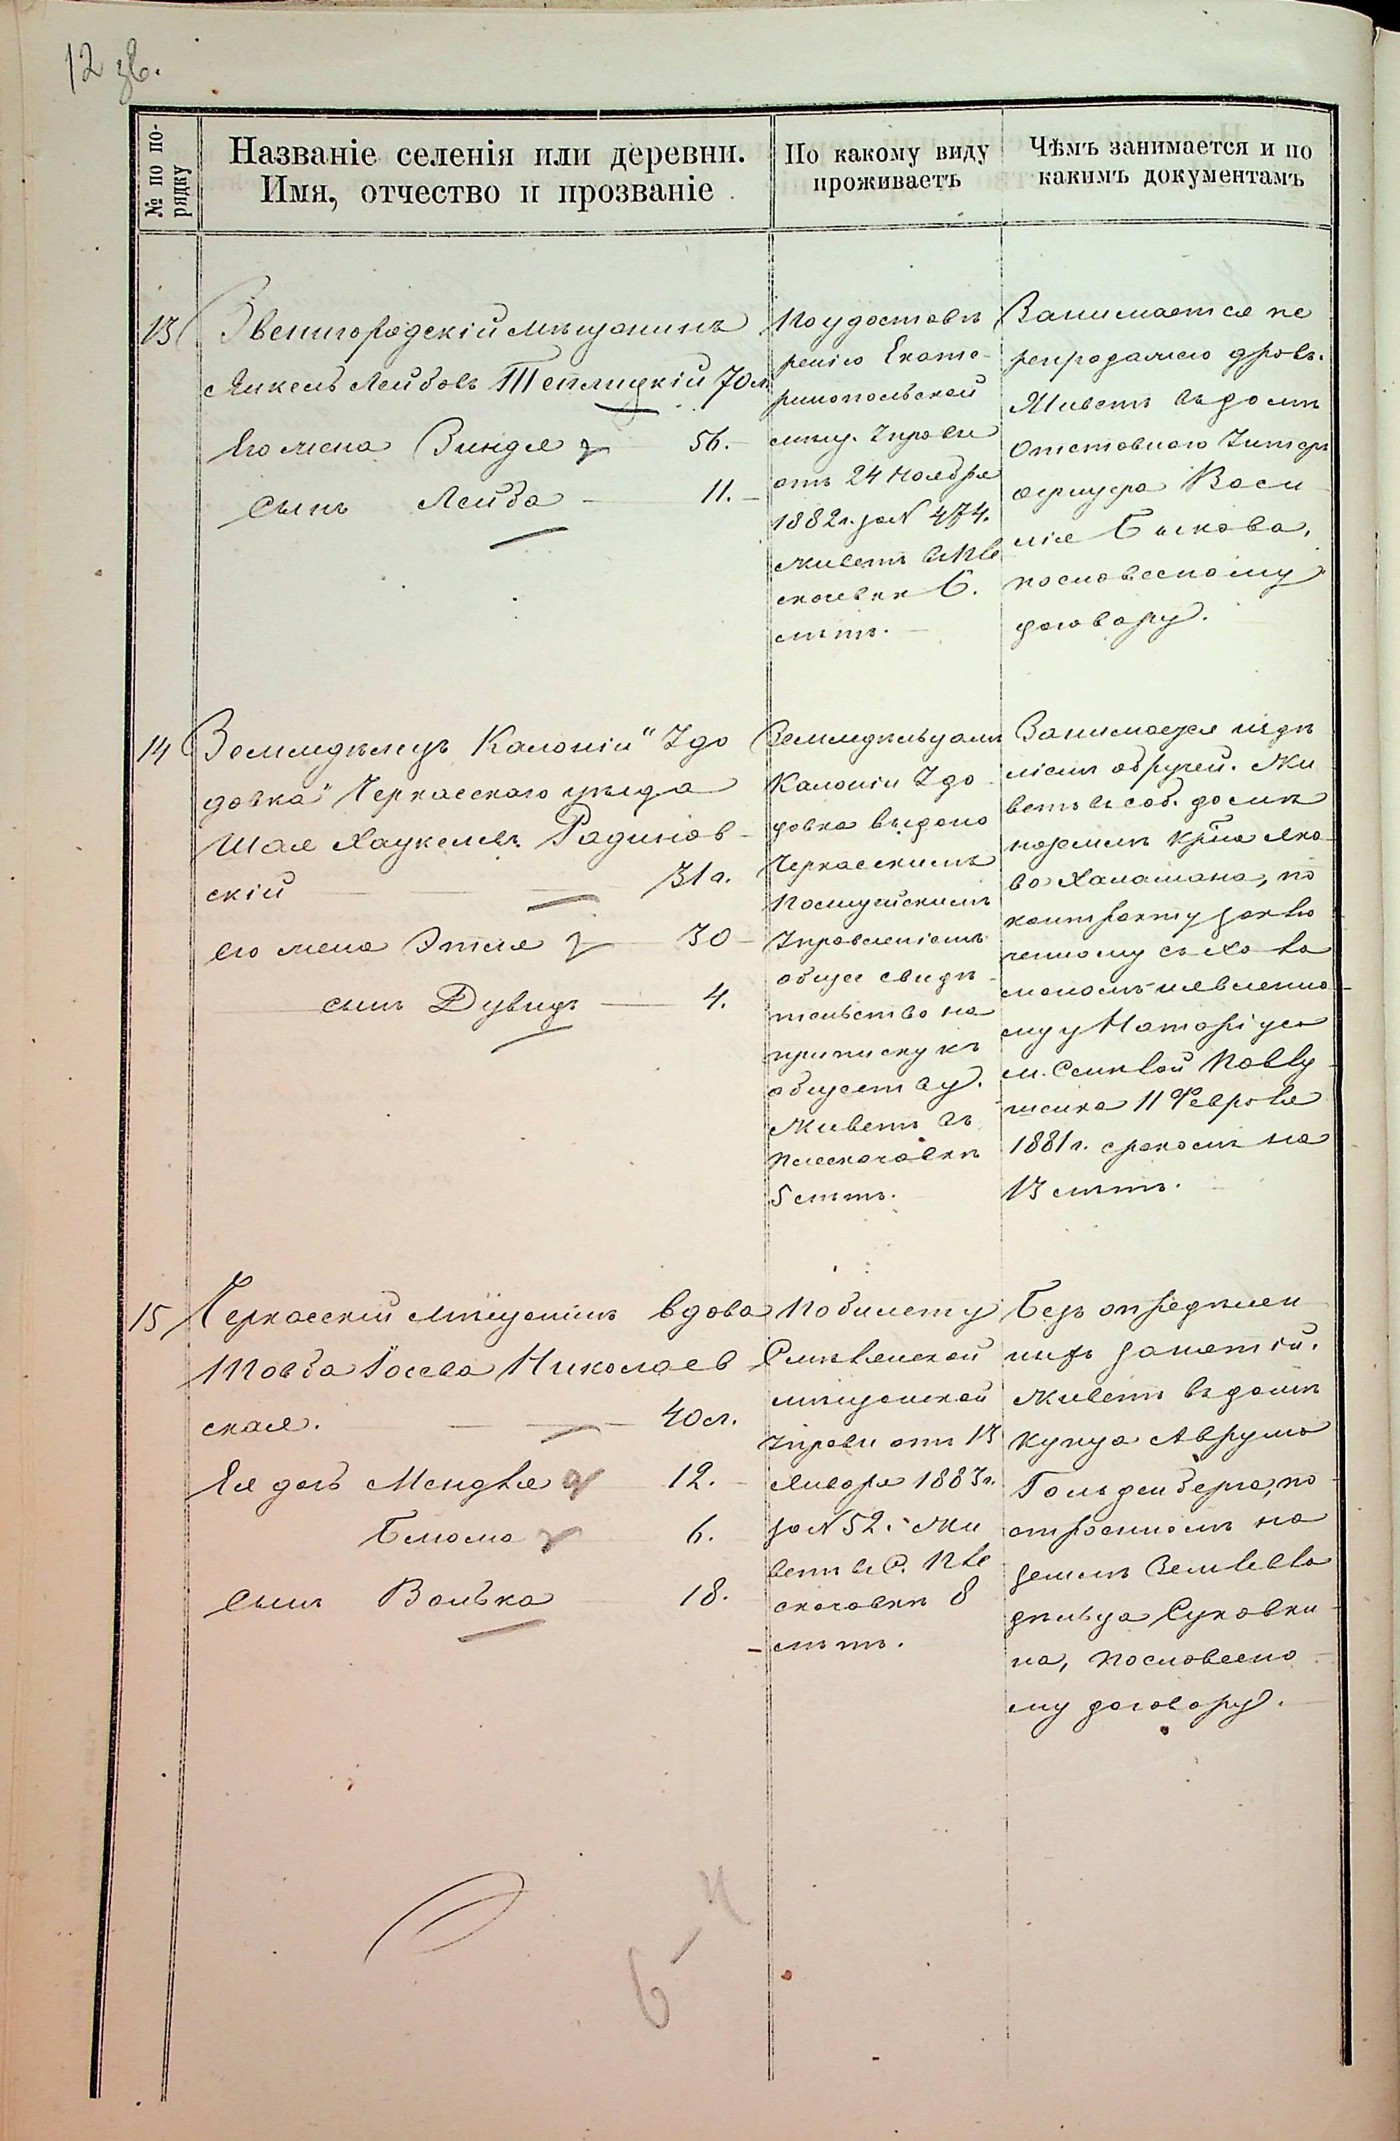 12 зв.
№ по по-
рядку
Названіе селенія или деревни.
Имя, отчество и прозваніе
По какому виду
проживаетъ
Чѣмъ занимается и по
какимъ документамъ
13
Звенигородскій мѣщанинъ
Янкель Лейбовъ Теплицкій 70 л.
Его жена Зиндля 56.
Сынъ Лейба 11.
По удостовѣ
ренію Екате-
ринопольской
мѣщ. Управы
отъ 24 Ноября
1882 г. за N 474.
живетъ въ Пле
скачевкѣ 6.
лѣтъ.
Занимается пе
репродажею дровъ.
Живетъ въ домѣ
Отставного Унтеръ
офицера Васи
лія Быкова,
по словесному
договору.
14
Земледѣлецъ Колоніи "Ядо
довка" Черкасскаго уѣзда
Шая Хаукелевъ Радинов-
скій 31 г.
его жена Этля 30
сынъ Дувидъ 4.
Земледѣльцамъ
Колоніи
довка выдано
Черкасскимъ
Полицейскимъ
Управленіемъ
общее свидѣ-
тельство на
приписку къ
обществу.
Живетъ въ
Плескачевкѣ
5 лѣтъ.
Занимается издѣ
ліемъ обручей. Жи
ветъ въ соб. домѣ
на землѣ Кр-на Яко-
ва Халамана, по
контракту заклю
ченному съ Хала
маномъ и явленно-
му у Нотаріуса
м. Смѣлой Павлу-
шенка 11 Февраля
1881 г. срокомъ на
13 лѣтъ.
15
Черкасскій мѣщанинъ вдова
Товба Іосева Николаев
ская. 40 л.
Ея дочь Мендля 12.
Блюма 6.
сынъ Волька 18.
По билету
Смѣлянской
мѣщанской
Управы отъ 13
Января 1883 г.
за N 52. Жи
ветъ въ С. Пле
скачевкѣ 8
лѣтъ.
Безъ опредѣлен
ныхъ занятій.
Живетъ въ домѣ
купца Аврума
Гольденберга, по
строенномъ на
землѣ Землевла
дѣльца Суковки-
на, по словесно-
му договору.
6-4